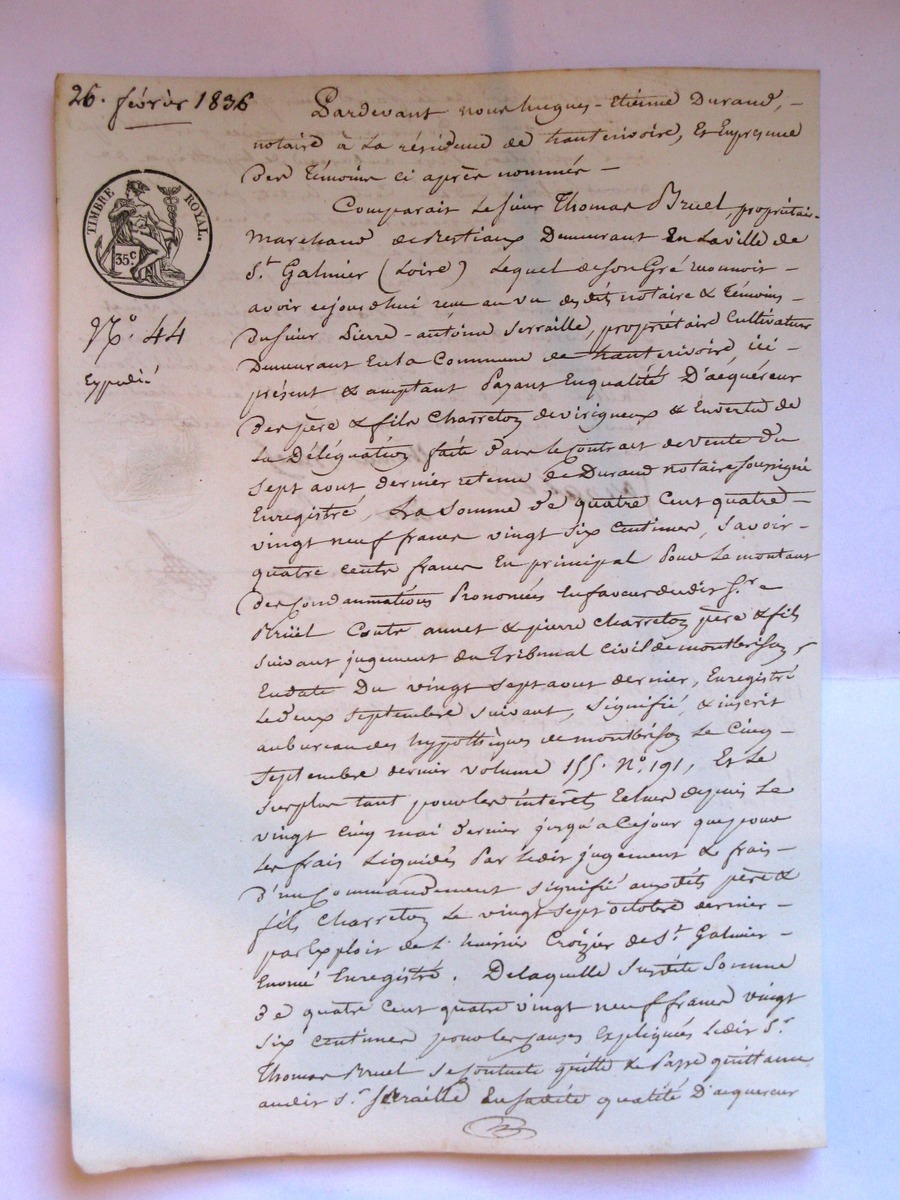 26. février 1836
TIMBRE ROYAL.
35.c
No. 44
Expédié
Pardevant nous hugues-étienne Durand,
notaire à La résidence de hauterivoire, Et En présence
Des Témoins ci après nommés —
Comparait Le sieur Thomas Bruel, propriétaire
Marchand de Bestiaux Demeurant En La ville de
St. Galmier (Loire) Lequel de son Gré reconnoit
avoir cejourd'hui reçu au vu desdits notaire & Témoins
Du sieur Pierre-antoine Serraille, propriétaire Cultivateur
Demeurant En la Commune de hauterivoire, ici
présent & acceptant Payant En qualité D'acquéreur
Des père & fils Charreton de virigneux & En vertu de
La Délégation faite Dans Le Contrat de vente Du
Sept aout dernier retenu de Durand notaire soussigné
Enregistré, La Somme De quatre Cent quatre
vingt neuf francs vingt six centimes, savoir
quatre cents francs En principal Pour Le montant
Des Condamnations Prononcées En faveur dudit Sr.
Bruël Contre annet & pierre Charreton père & fils
suivant jugement du Tribunal Civil de montbrison
En date Du vingt sept aout dernier, Enregistré
Le deux septembre suivant, signifié, & inscrit
au bureau des hypothèques de montbrison Le Cinq
Septembre dernier volume 155. No. 191, Et Le
surplus tant pour les intérêts Echus depuis Le
vingt Cinq mai dernier jusqu'à Ce jour que pour
Les frais Liquidés Par Ledit jugement & frais
D'un Commandement signifié auxdits père &
fils Charreton Le vingt sept octobre dernier
par Exploit de L'huissier Crozier de St. Galmier
Enregistré. De laquelle susdite Somme
De quatre Cent quatre vingt neuf francs vingt
six centimes pour les causes Expliquées Ledit Sr.
Thomas Bruel se contente quitte & Passe quittance
audit Sr. Serraille En sadite qualité D'acquereur